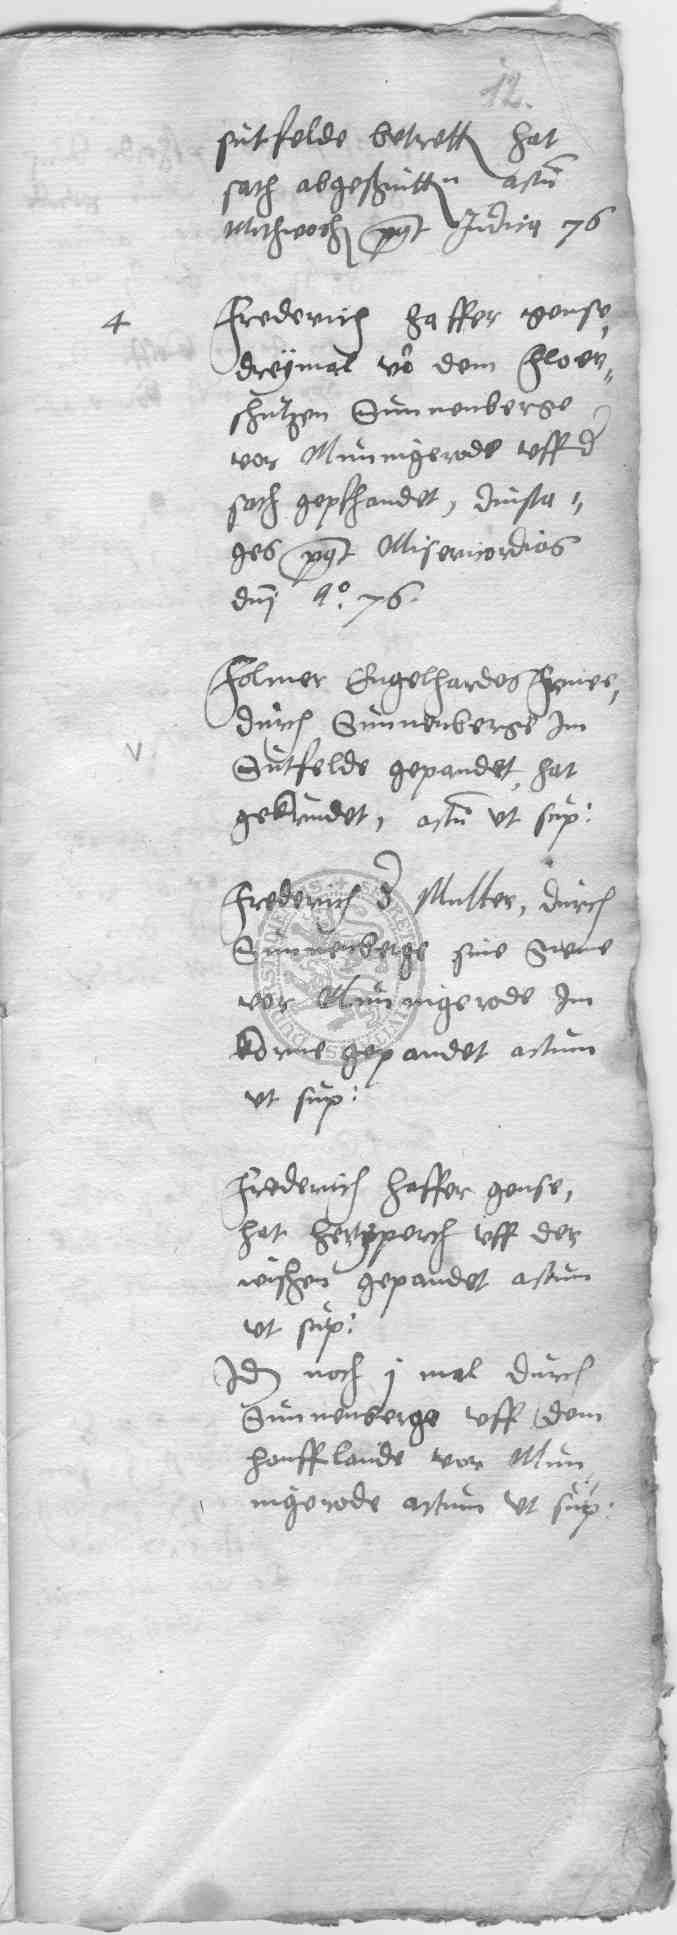 12.
sutfelde betrett hat
sath abgeschnitten actu
Mithwoch pt Judica 76
4
Frederich haffer gense,
dreymal vo dem Floer„
schutzen Sunnenberge
vor Munnigerode vff d
sath gepfhandet, dinsta„
ges pt Misericordias
dni Ao. 76.
Folmer Engelhardes
durch Sunnenberge Im
V
Sutfelde gepandet hat
gekundet, actu vt sup:
Frederich d Muller, durch
Sunnenberge sine
vor Munnigerode Im
korne gepandet actum
vt sup:
Frederich haffer gense,
hat uff der
wischen gepandet actum
vt sup:
Id noch j mal durch
Sunnenberge vff dem
hanfflande vor Mun
nigerode actum vt sup: